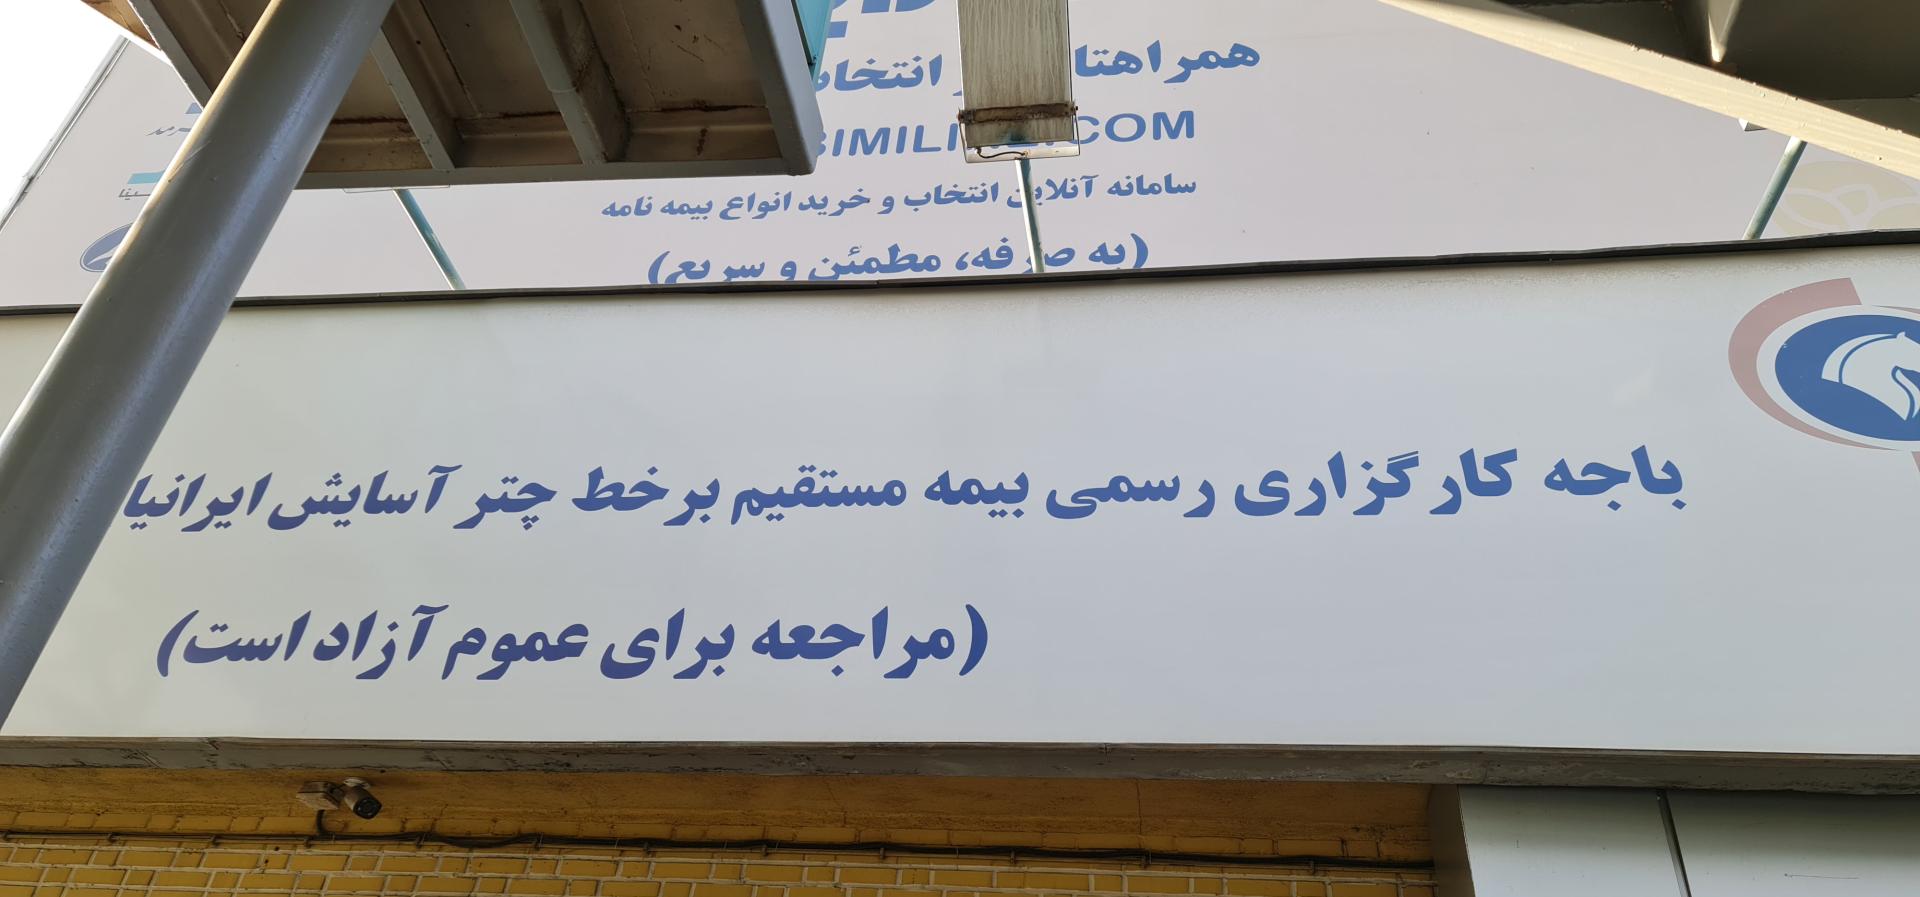 همراهتا انتخاب
BIMILI .COM
سامانه آنلاین انتخاب و خرید انواع بیمه نامه
(به صرفه، مطمئن و سریع)
باجه کارگزاری رسمی بیمه مستقیم برخط چتر آسایش ایرانیا
(مراجعه برای عموم آزاد است)